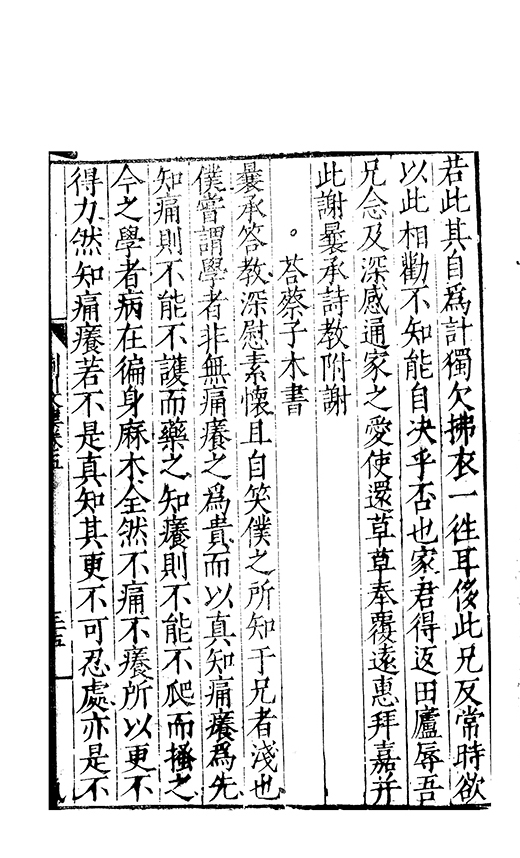 若此其自為計獨欠拂衣一徃耳俟此兄反常時欲
以此相勸不知能自决乎否也家君得返田廬辱吾
兄念及深感通家之愛使還草草奉覆遠惠拜嘉并
此謝曩承詩教附謝
。荅蔡子木書
曩承答教深慰素懷且自笑僕之所知于兄者淺也
僕嘗謂學者非無痛癢之為貴而以真知痛癢為先
知痛則不能不護而藥之知癢則不能不爬而搔之
今之學者病在徧身麻木全然不痛不癢所以更不
得力然知痛癢若不是真知其更不可忍處亦是不